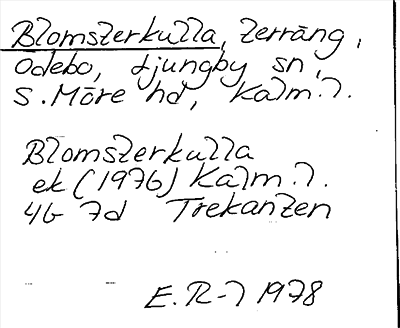 Blomsterkulla, terräng,
Odebo, Ljungby sn,
S. Möre hd, Kalm. l.
Blomsterkulla
ek (1976) Kalm. l.
4G 7d Trekanten
E. R-l 1978